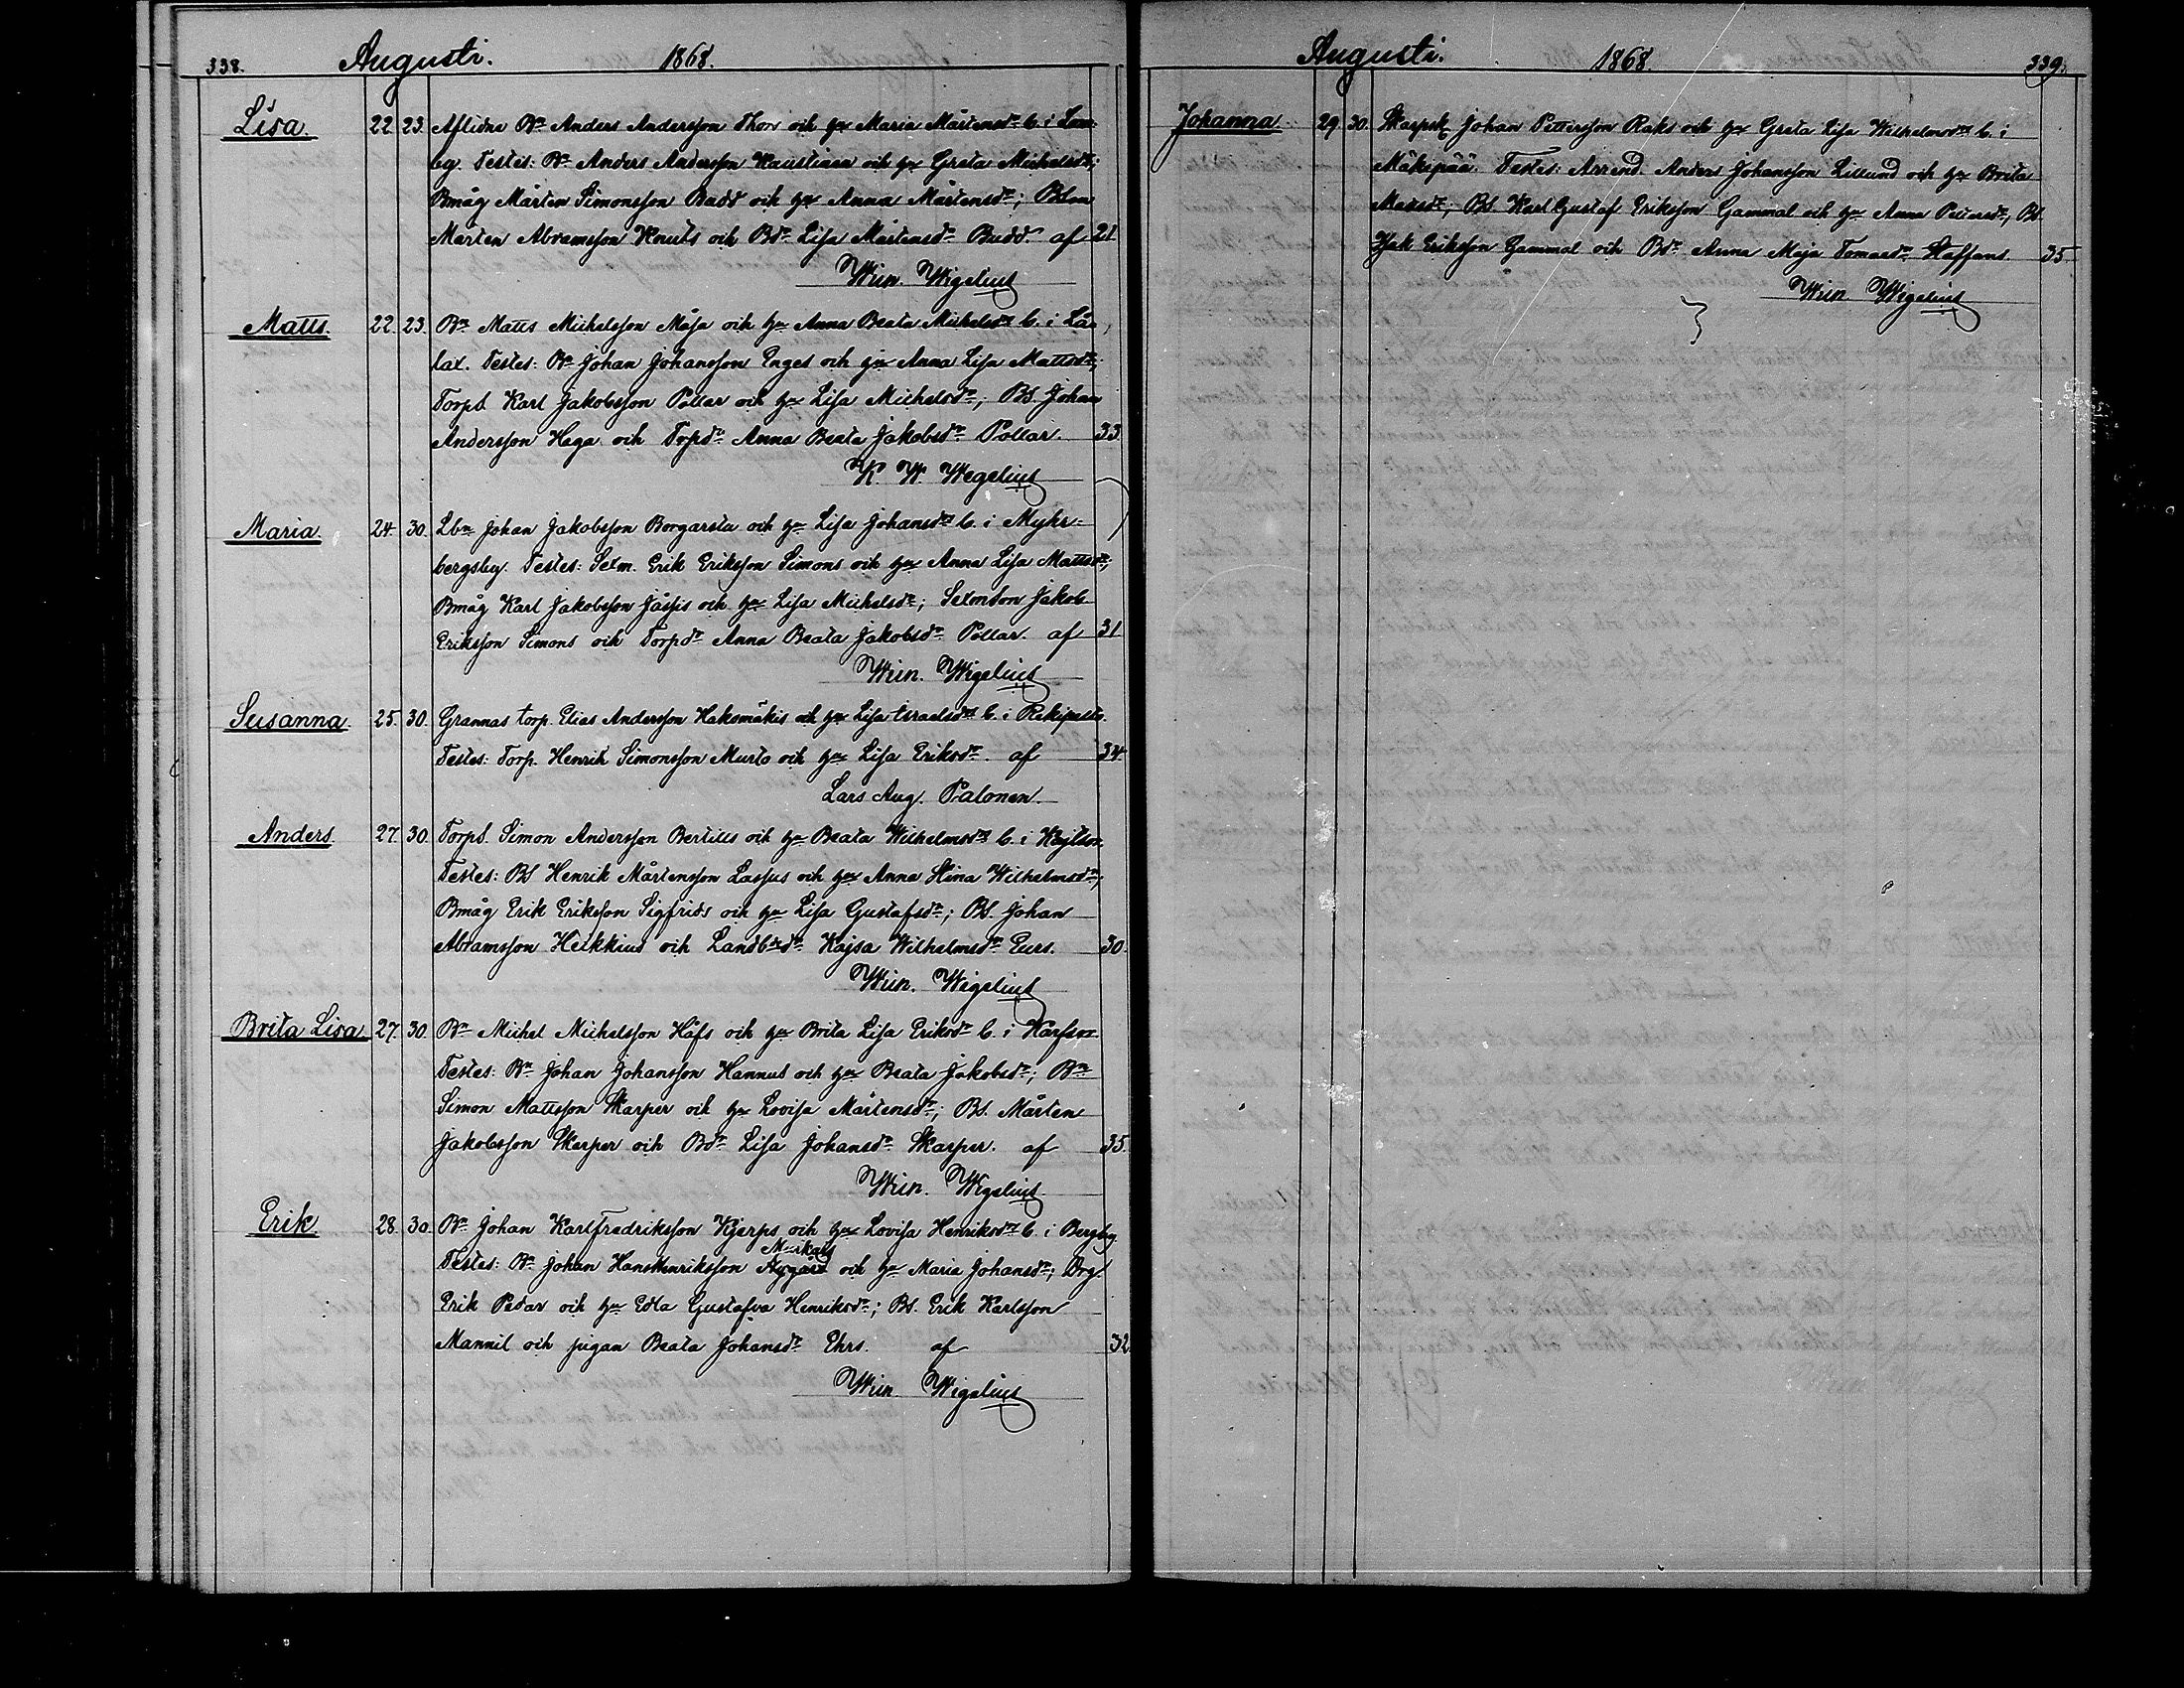 338. Augusti. 1868.
Lisa. 22. 23. Aflidne Bn Anders Andersson Thors och hu Maria Mårtensdr b. i Lam-
by. Testes: Bn Anders Andersson Kaustinen och hu Greta Michelsdr;
Bmåg Mårten Simonsson Budd och hu Anna Mårtensdr; Bson
Mårten Abramsson Knuts och Bdr Lisa Mårtensdr Budd. af 21
Wm. Wegelius
Matts. 22. 23. Bn Matts Michelsson Måsa och hu Anna Beata Michelsdr b. i Lå-
tax. Testes: Bn Johan Johansson Enges och hu Anna Lisa Mattsdr;
Torps Karl Jakobsson Pollar och hu Lisa Michelsdr; Bs. Johan
Andersson Haga och Trpdr Anna Beata Jakobsdr Pollar. 33.
K W Wegelius
Maria. 24. 30. Lbn Johan Jakobsson Borgarsta och hu Lisa Johansdr b. i Myhr-
bergsby. Testes: Sexm. Erik Eriksson Simons och hu Anna Lisa Mattsdr;
Bmåg Karl Jakobsson Jåssis och hu Lisa Michelsdr; Sexmson Jakob
Eriksson Simons och Torpdr Anna Beata Jakobsdr Pollar. af 31
Wm. Wegelius
Susanna. 25. 30. Grannas torp. Elias Andersson Hakomäkis och hu Lisa Israelsdr b. i Rekipelto.
Testes: Torp. Henrik Simonsson Murto och hu Lisa Eriksdr. af 34.
Lars Aug. Palonen.
Anders. 27. 30. Torps. Simon Andersson Bertills och hu Beata Wilhelmsdr b. i
Testes: Bs Henrik Mårtensson Lassus och hu Anna Stina Wilhelmsdr;
Bmåg Erik Eriksson Sigfrids och hu Lisa Gustafsdr; Bs. Johan
Abramsson Heikkius och Landbdr Kajsa Wilhelmsdr Eurs. 30.
Wm. Wegelius
Brita Lisa. 27. 30. Bn Michel Michelsson Häfs och hu Brita Lisa Eriksdr b. i
Testes: Bn Johan Johansson Hannus och hu Beata Jakobsdr; Bn
Simon Mattsson Skarper och hu Lovisa Mårtensdr; Bs. Mårten
Jakobsson Skarper och Bdr Lisa Johansdr Skarper. af 35.
Wm. Wegelius
Erik 28. 30. Bn Johan Karlfredriksson Kjerps och hu Lovisa Henriksdr b. i Bergby.
Testes: Bn Johan Hanshenriksson och hu Maria Johansdr; Drg.
Erik Pedar och hu Edla Gustafva Henriksdr; Bs. Erik Karlsson
Mannil och pigan Beata Johansdr Ehrs. af 32
Wm. Wegelius
Augusti. 1868. 339.
Johanna 29. 30. Skarpsk. Johan Pettersson Raks och hu Greta Lisa Wilhelmsdr b. i
Mäkipää. Testes: Arrend. Anders Johansson Lillund och hu Brita
Matsdr; Bs. Karl Gustaf Eriksson Gammal och hu Anna Petersdr; Bs.
Isak Eriksson Gammal och Bdr Anna Maja Tomasdr Staffans. 35.
Wm Wegelius